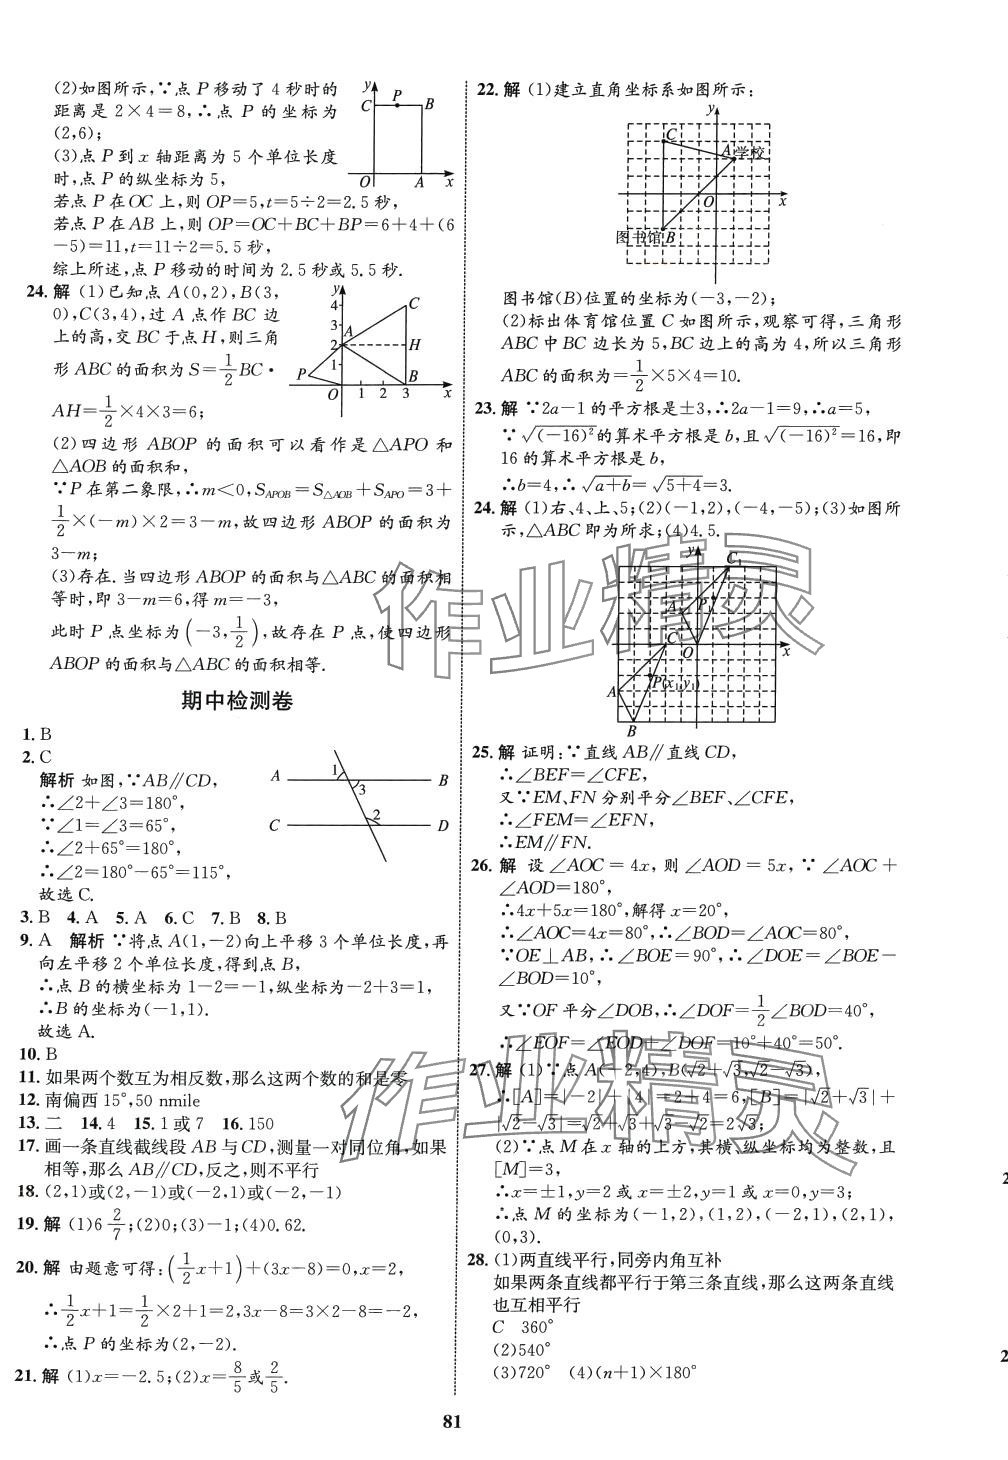 (2)如图所示,∵点 P 移动了 4 秒时的
距离是 2×4=8,∴点 P 的坐标为
(2,6);
(3)点 P 到 x 轴距离为 5 个单位长度
时,点 P 的纵坐标为 5,
若点 P 在 OC 上,则 OP=5,t=5÷2=2.5 秒,
若点 P 在 AB 上,则 OP=OC+BC+BP=6+4+(6
-5)=11,t=11÷2=5.5 秒,
综上所述,点 P 移动的时间为 2.5 秒或 5.5 秒.
y
C P B
O A x
24. 解 (1)已知点 A(0,2),B(3,
0),C(3,4),过 A 点作 BC 边
上的高,交 BC 于点 H,则三角
形 ABC 的面积为 S=1/2 BC·
AH=1/2×4×3=6;
y
4 C
3 A
2 H
1
P B
O 1 2 3 x
(2)四边形 ABOP 的面积可以看作是△APO 和
△AOB 的面积和,
∵P 在第二象限,∴m<0,S_APOB=S_△AOB+S_APO=3+
1/2×(-m)×2=3-m,故四边形 ABOP 的面积为
3-m;
(3)存在.当四边形 ABOP 的面积与△ABC 的面积相
等时,即 3-m=6,得 m=-3,
此时 P 点坐标为(-3,1/2),故存在 P 点,使四边形
ABOP 的面积与△ABC 的面积相等.
期中检测卷
1. B
2. C
解析 如图,∵AB∥CD,
∴∠2+∠3=180°,
∵∠1=∠3=65°,
∴∠2+65°=180°,
∴∠2=180°-65°=115°,
故选 C.
A 1 3 B
C 2 D
3. B 4. A 5. A 6. C 7. B 8. B
9. A 解析 ∵将点 A(1,-2)向上平移 3 个单位长度,再
向左平移 2 个单位长度,得到点 B,
∴点 B 的横坐标为 1-2=-1,纵坐标为-2+3=1,
∴B 的坐标为(-1,1).
故选 A.
10. B
11. 如果两个数互为相反数,那么这两个数的和是零
12. 南偏西 15°,50 nmile
13. 二 14. 4 15. 1 或 7 16. 150
17. 画一条直线截线段 AB 与 CD,测量一对同位角,如果
相等,那么 AB∥CD,反之,则不平行
18. (2,1)或(2,-1)或(-2,1)或(-2,-1)
19. 解 (1)6 2/7;(2)0;(3)-1;(4)0.62.
20. 解 由题意可得:(1/2 x+1)+(3x-8)=0,x=2,
∴1/2 x+1=1/2×2+1=2,3x-8=3×2-8=-2,
∴点 P 的坐标为(2,-2).
21. 解 (1)x=-2.5;(2)x=8/5或2/5.
22. 解 (1)建立直角坐标系如图所示:
y
C
A 学校
O x
图书馆 B
图书馆(B)位置的坐标为(-3,-2);
(2)标出体育馆位置 C 如图所示,观察可得,三角形
ABC 中 BC 边长为 5,BC 边上的高为 4,所以三角形
ABC 的面积为=1/2×5×4=10.
23. 解 ∵2a-1 的平方根是±3,∴2a-1=9,∴a=5,
∵√(-16)²的算术平方根是 b,且√(-16)²=16,即
16 的算术平方根是 b,
∴b=4,∴√a+b=√5+4=3.
24. 解 (1)右、4、上、5;(2)(-1,2),(-4,-5);(3)如图所
示,△ABC 即为所求;(4)4.5.
y C₁
A₁ P
C O x
A P(x₁,y₁)
B
25. 解 证明:∵直线 AB∥直线 CD,
∴∠BEF=∠CFE,
又∵EM、FN 分别平分∠BEF、∠CFE,
∴∠FEM=∠EFN,
∴EM∥FN.
26. 解 设∠AOC=4x,则∠AOD=5x,∵∠AOC+
∠AOD=180°,
∴4x+5x=180°,解得 x=20°,
∴∠AOC=4x=80°,∴∠BOD=∠AOC=80°,
∵OE⊥AB,∴∠BOE=90°,∴∠DOE=∠BOE-
∠BOD=10°,
又∵OF 平分∠DOB,∴∠DOF=1/2∠BOD=40°,
∴∠EOF=∠EOD+∠DOF=10°+40°=50°.
27. 解 (1)∵点 A(-2,4),B(√2+√3,√2-√3),
∴[A]=|-2|+|4|=2+4=6,[B]=|√2+√3|+
|√2-√3|=√2+√3+√3-√2=2√3;
(2)∵点 M 在 x 轴的上方,其横、纵坐标均为整数,且
[M]=3,
∴x=±1,y=2 或 x=±2,y=1 或 x=0,y=3;
∴点 M 的坐标为(-1,2),(1,2),(-2,1),(2,1),
(0,3).
28. (1)两直线平行,同旁内角互补
如果两条直线都平行于第三条直线,那么这两条直线
也互相平行
C 360°
(2)540°
(3)720° (4)(n+1)×180°
81
作业精灵
作业精灵